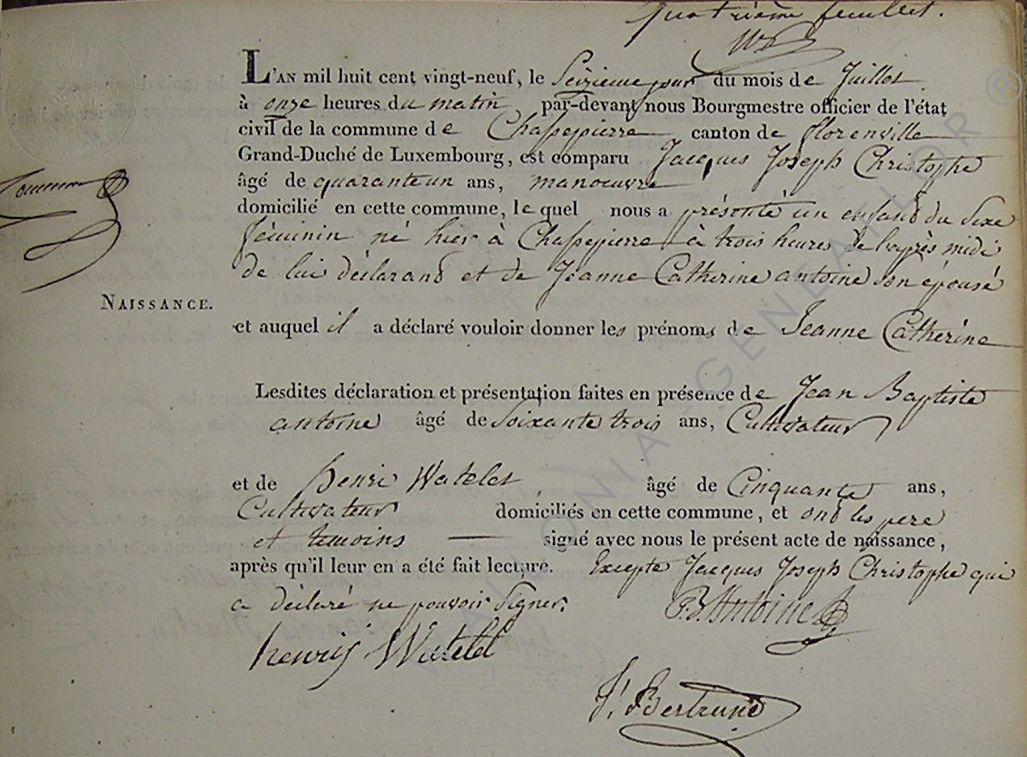 quatrième feuillet.
L'AN mil huit cent vingt-neuf, le Seizieme jour du mois de Juillet
à onze heures du matin par-devant nous Bourgmestre officier de l'état
civil de la commune de Chassepierre canton de florenville
Grand-Duché de Luxembourg, est comparu Jacques Joseph Christophe
âgé de quarante un ans, manoeuvre
domicilié en cette commune, lequel nous a présenté un enfand du Sexe
féminin né hier à Chassepierre à trois heures de l'après midi
de lui déclarand et de Jeanne Catherine antoine son épouse
NAISSANCE.
et auquel il a déclaré vouloir donner les prénoms de Jeanne Catherine
Lesdites déclaration et présentation faites en présence de Jean Baptiste
antoine âgé de Soixante trois ans, Cultivateur
et de henri Watelet âgé de Cinquante ans,
Cultivateur domiciliés en cette commune, et ond les pere
et temoins — signé avec nous le présent acte de naissance,
après qu'il leur en a été fait lecture. Excepte Jacques Joseph Christophe qui
a déclaré ne pouvoir Signer.
JB Antoine
henrij Watelet
Bertrand